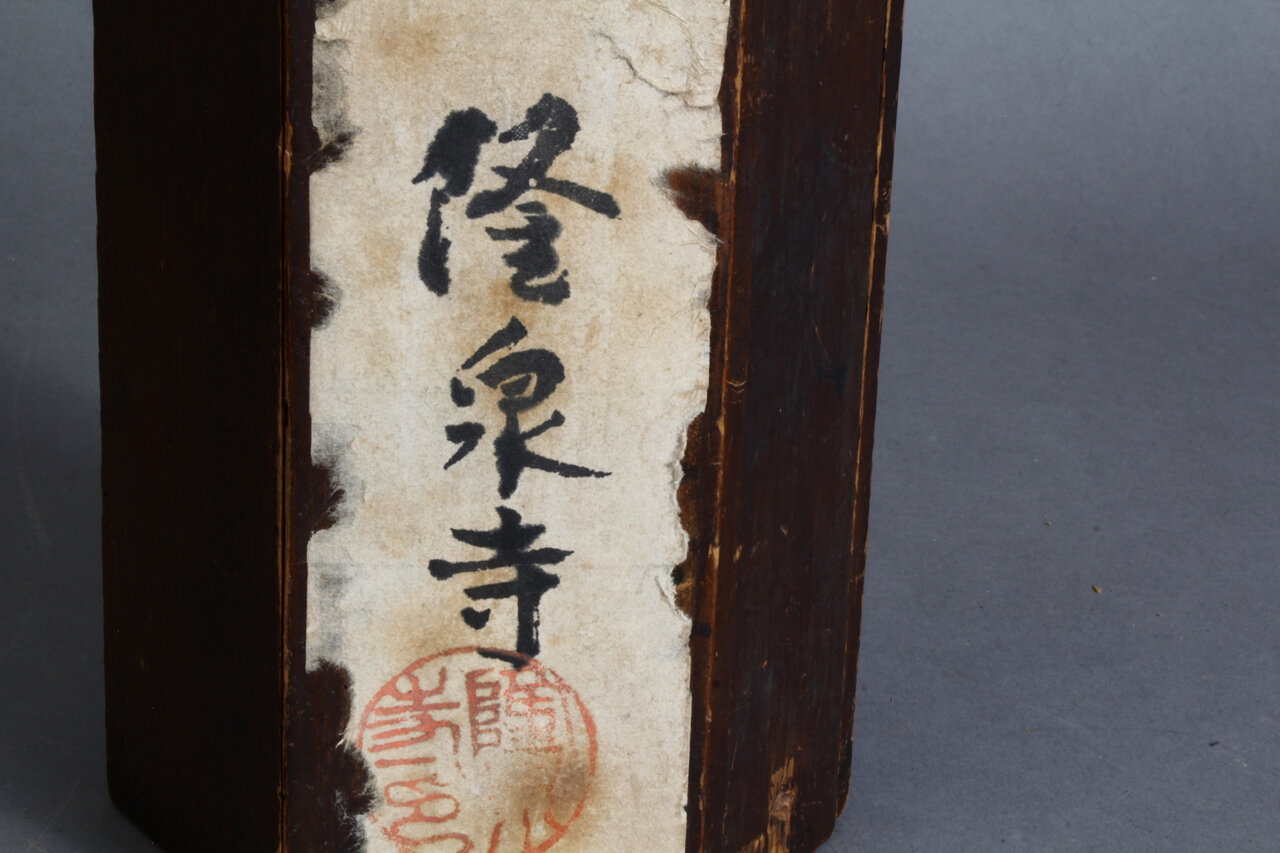 隆泉寺